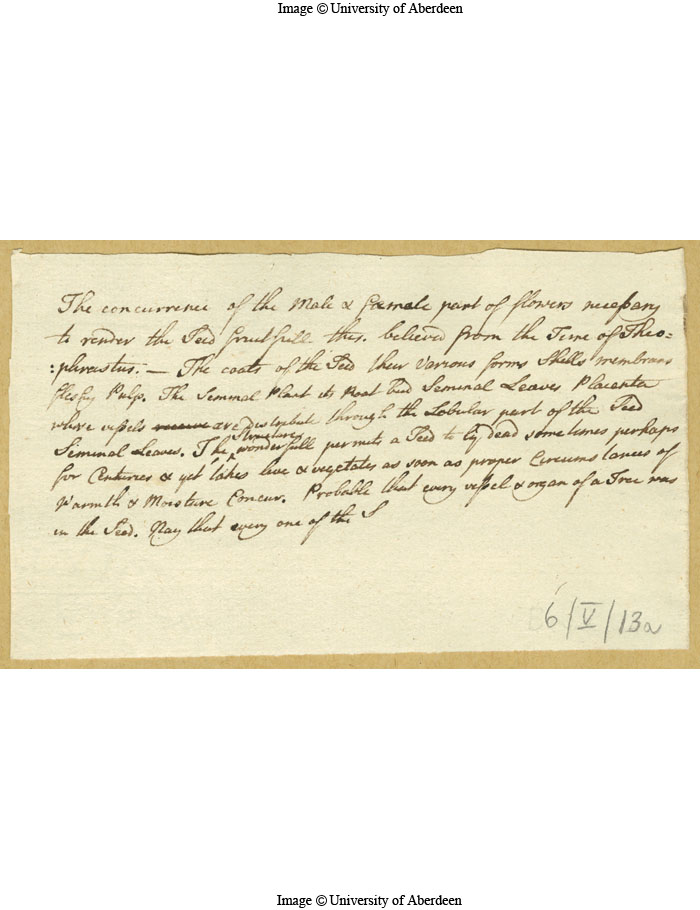 Image © University of Aberdeen
The concurrence of the Male & Female part of flowers necessary
to render the Seed fruitfull this. believed from the Time of Theo=
:phrastus. — The coats of the Seed their various forms Shells membrans
fleshy Pulp. The Seminal Plant its Root bud Seminal Leaves Placenta
whose vessels are Distribute through the Lobular part of the Seed
Seminal Leaves. The wonderfull Structure permits a Seed to ly dead sometimes perhaps
for Centuries & yet takes live & vegetates as soon as proper Circumstances of
Warmth & Moisture Concur. Probable that every vessel & organ of a Tree was
in the Seed. Nay that every one of the S
6/V/13a
Image © University of Aberdeen